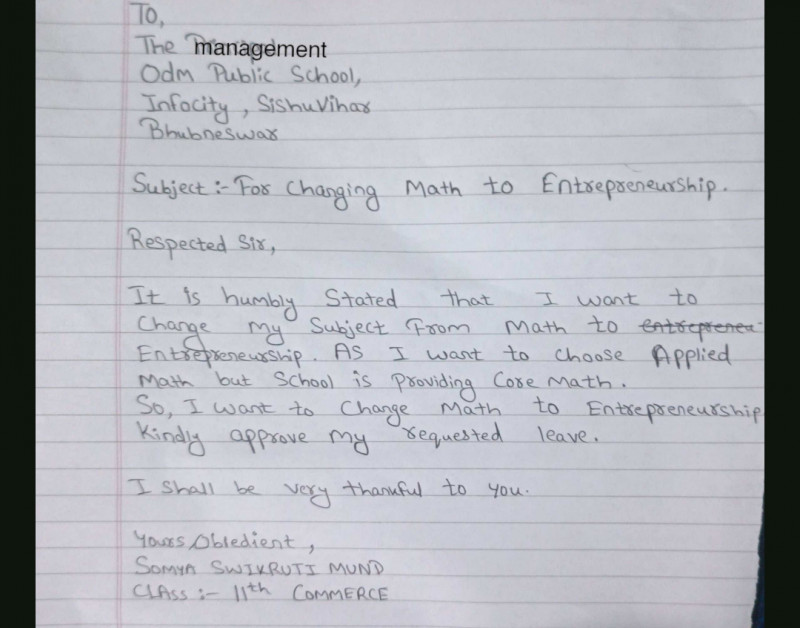 To,
The management
Odm Public School,
Infocity, Sishuvihar
Bhubneswar
Subject:- For Changing Math to Entrepreneurship.
Respected Sir,
It is humbly Stated that I want to
Change my Subject From Math to entrepreneu
Entrepreneurship. As I want to choose Applied
Math but School is Providing Core Math.
So, I want to Change Math to Entrepreneurship
Kindly approve my requested leave.
I Shall be very thankful to you.
Yours Obiedient,
SOMYA SWIKRUTI MUND
CLAss:- 11th COMMERCE